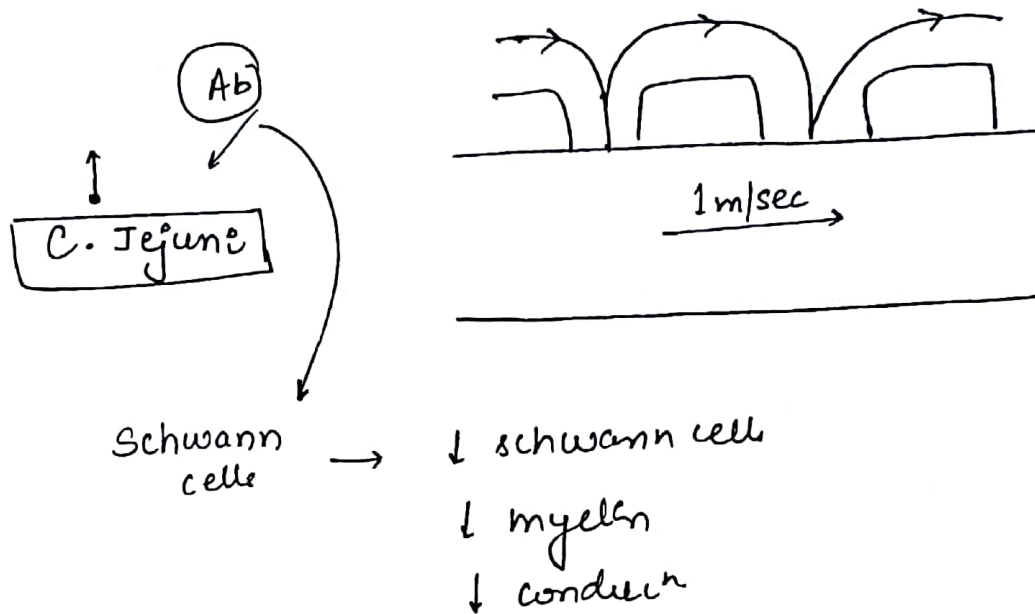 Ab
C. Jejuni
1m/sec
Schwann
cells
→ ↓ schwann cells
↓ myelin
↓ conducⁿ